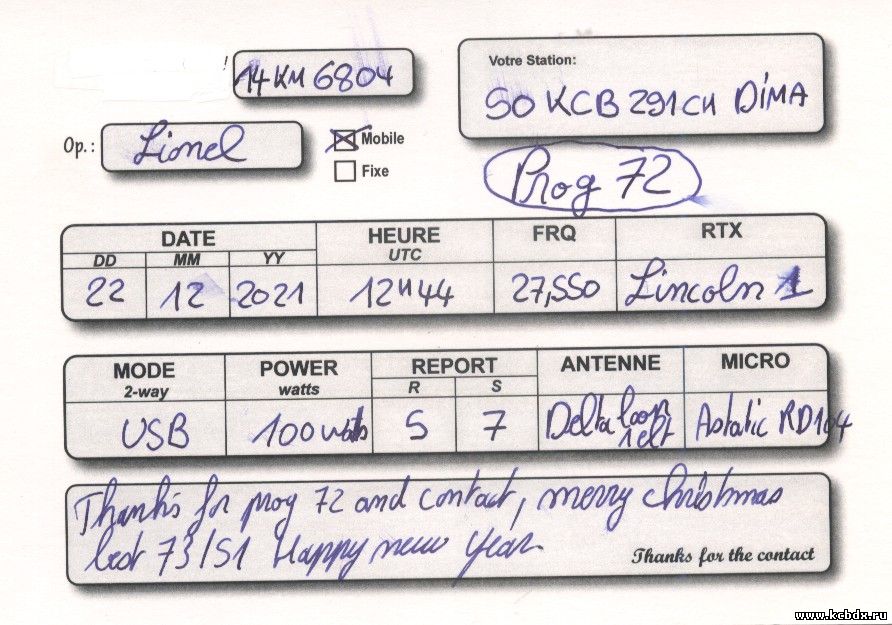 14 KM 6804
Votre Station:
50 KCB 291 CH DiMA
Op.: Lionel
Mobile
Fixe
Prog 72
DATE HEURE FRQ RTX
DD MM YY UTC
22 12 2021 12H44 27,550 Lincoln 1
MODE POWER REPORT ANTENNE MICRO
2-way watts R S
USB 100 watts 5 7 Delta loop Astatic RD104
1 elt
Thanks for prog 72 and contact, merry christmas
best 73/51 Happy new year
Thanks for the contact
www.kcbdx.ru